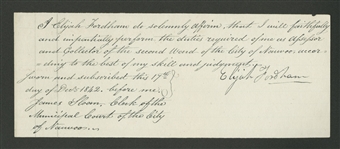 I Elijah Fordham do solemnly affirm, that I will faithfully
and impartially perform the duties required of me as Assessor
and Collector of the second Ward of the City of Nauvoo accor-
-ding to the best of my skill and judgment.
Sworn and subscribed this 17th Elijah Fordham
day of Decr 1842. before me
James Sloan, Clerk of the
Municipal Court of the City
of Nauvoo.